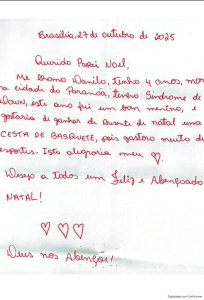 Brasília, 27 de outubro de 2025
Querido Papai Noel,
Me chamo Danilo, tenho 4 anos, mor
na cidade do Paranoá, tenho Síndrome de
Down, este ano fui um bom menino, e
gostaria de ganhar de presente de natal uma
CESTA DE BASQUETE, pois gosto muito de
esportes. Isto alegraria meu ♡.
Desejo a todos um Feliz e Abençoado
NATAL!
♡ ♡ ♡
Deus nos Abençõe!
Digitalizado com CamScanner